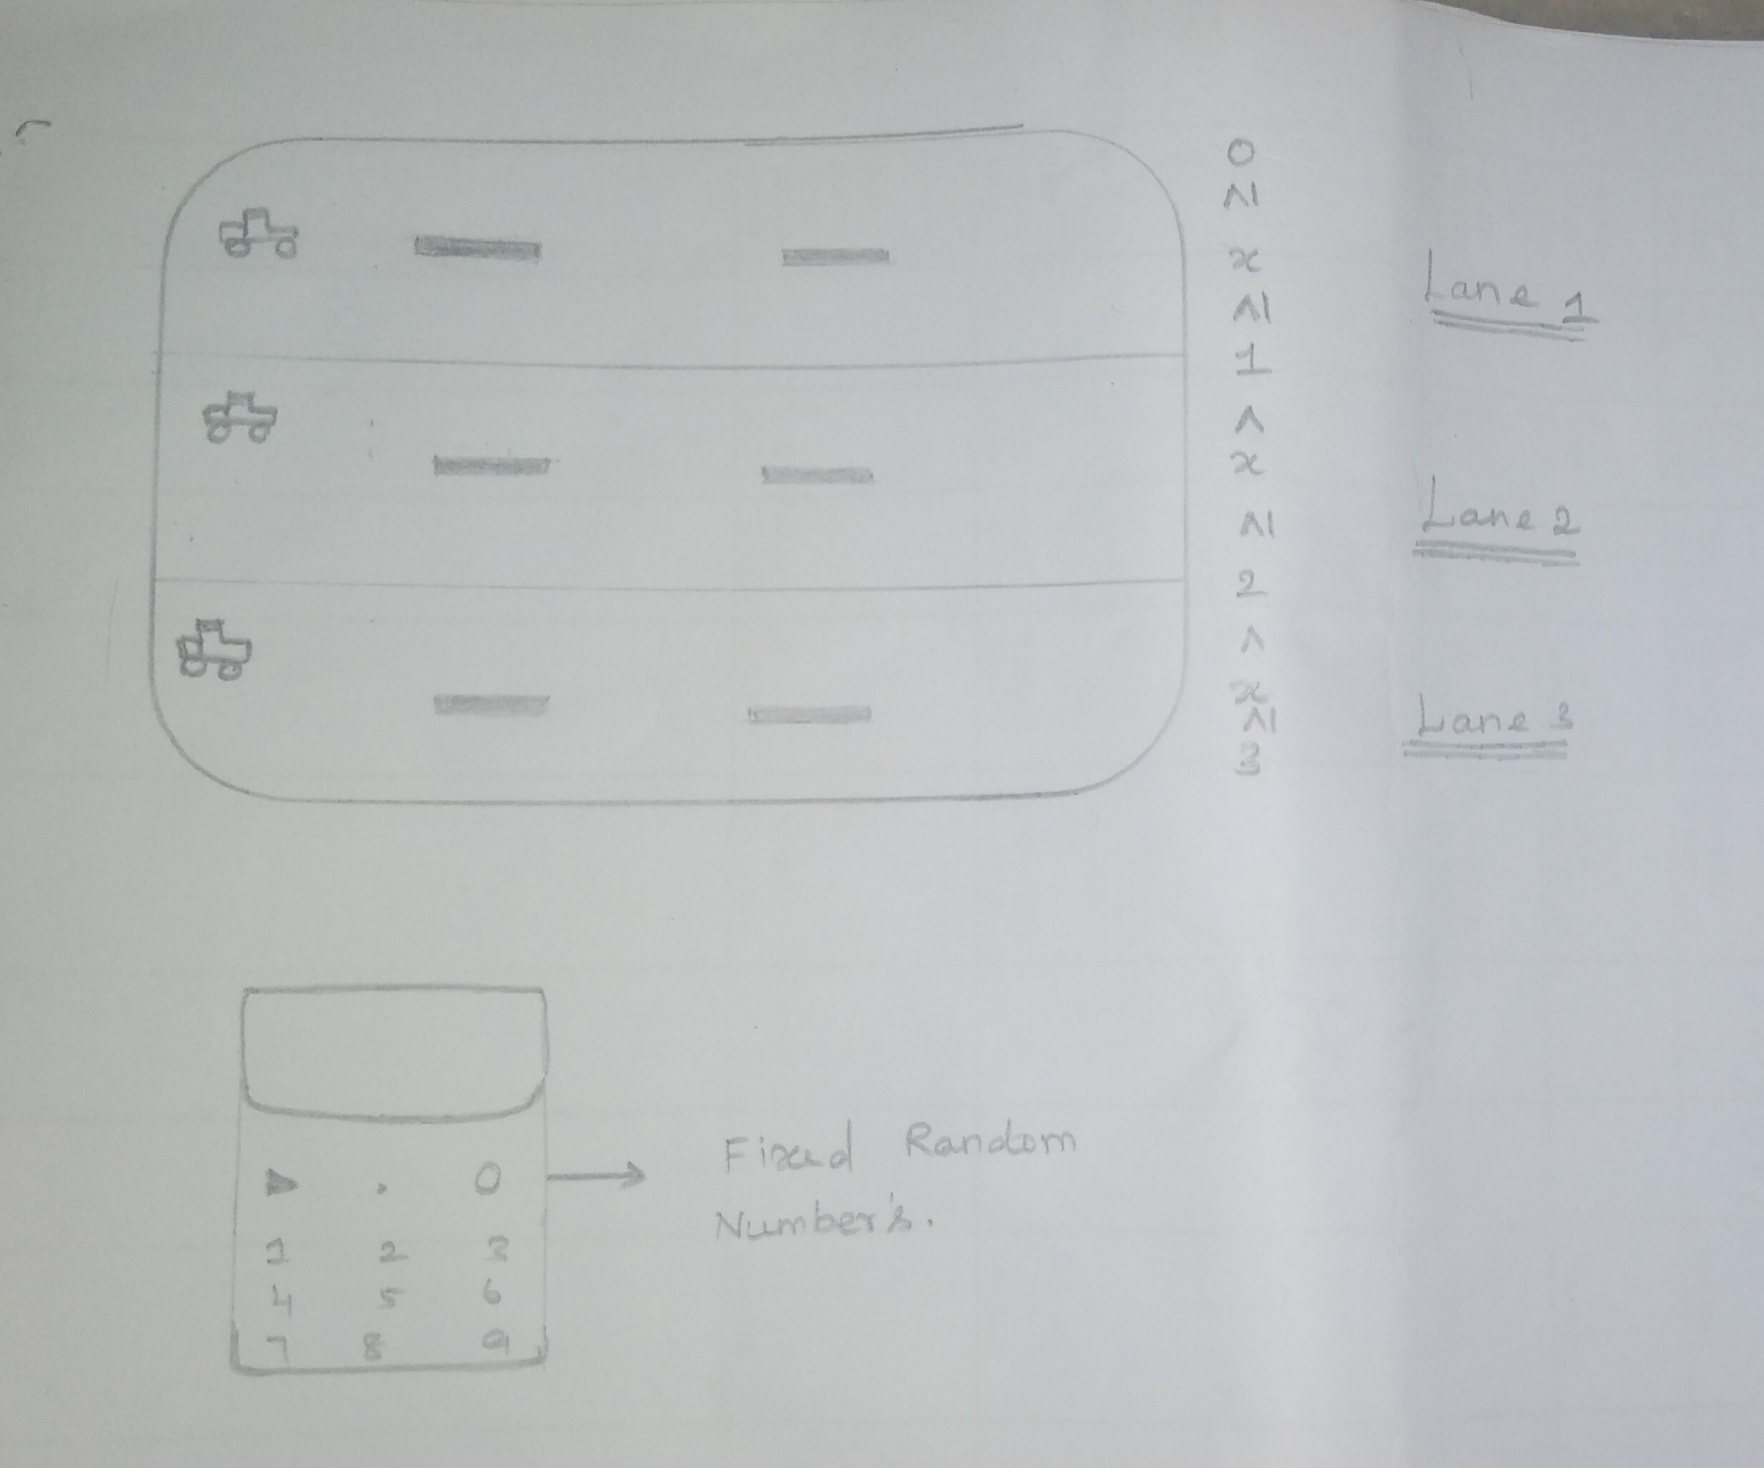 0 ≤ x ≤ 1 < x ≤ 2 < x ≤ 3
Lane 1
Lane 2
Lane 3
▶ . 0
1 2 3
4 5 6
7 8 9
Fixed Random
Number's.